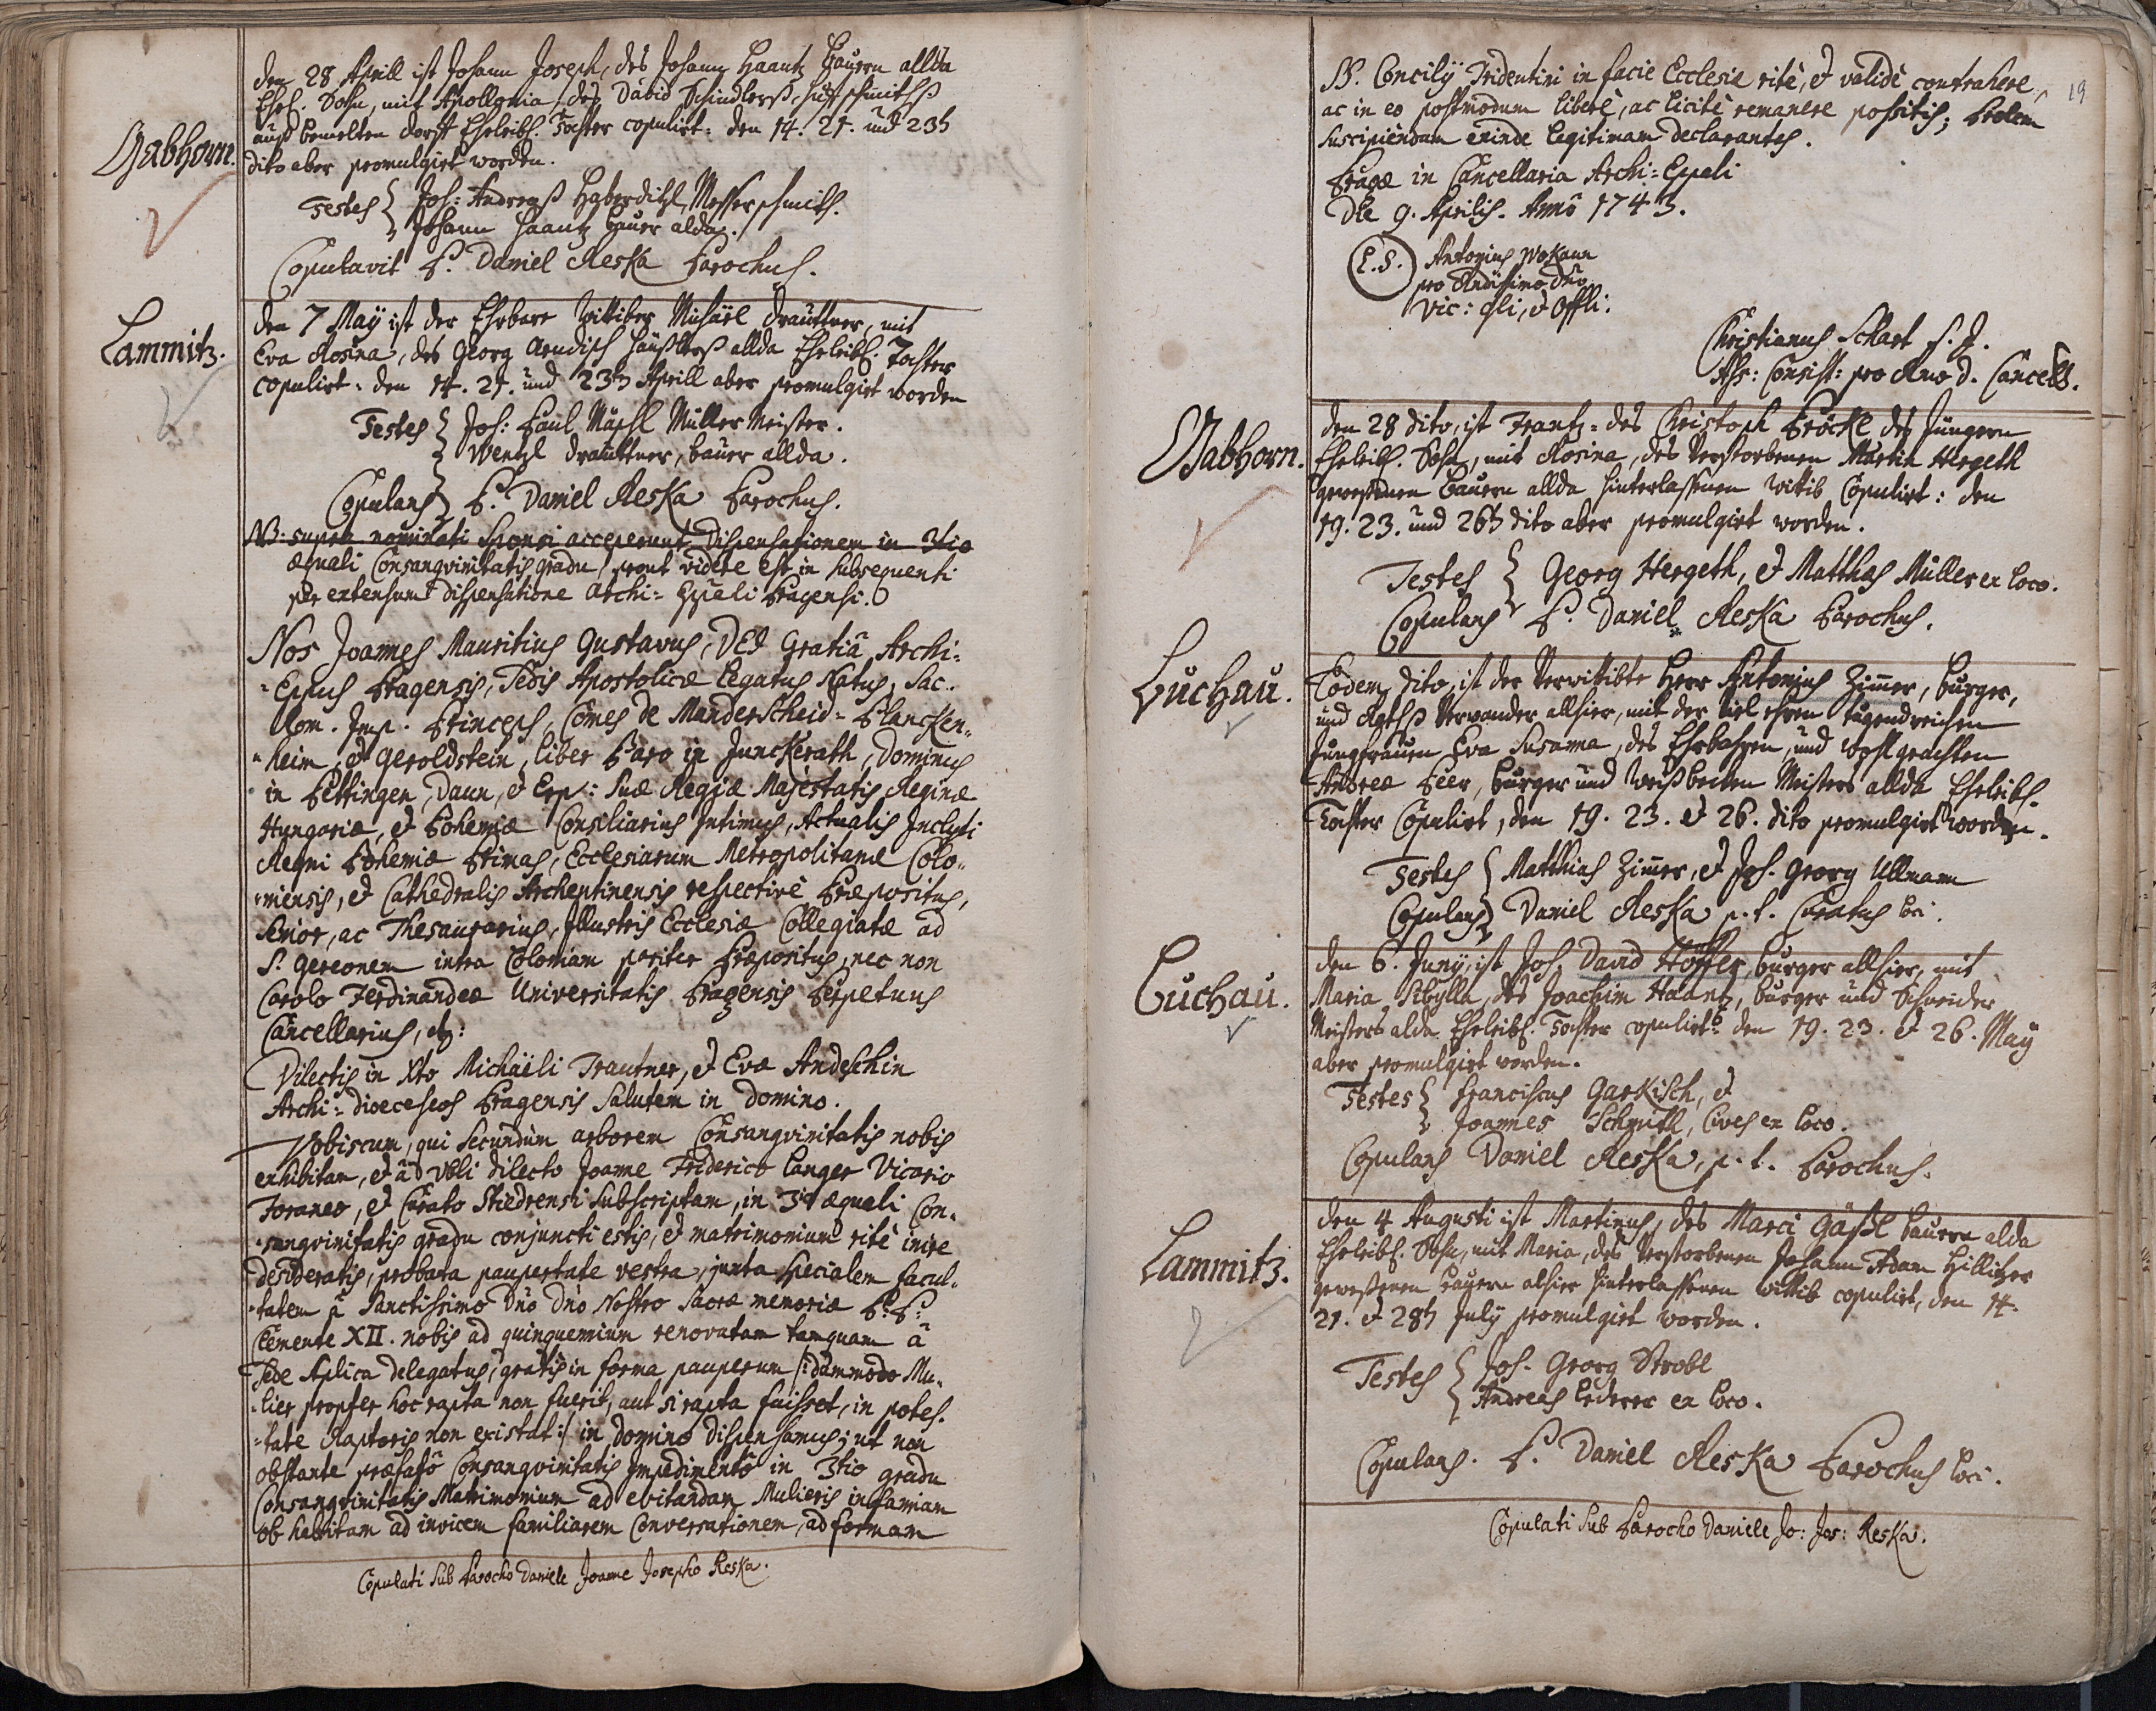 Gabhorn.
den 28 Aprill ist Johann Joseph, des Johann Haantz Bauern allda
Ehel. Sohn, mit Apollonia, des David Schindlerß, Huffschmithß
auß bemelten dorff Eheleibl. Tochter copulirt: den 14. 21. und 23t
dito aber promulgirt worden.
Testes Joh: Andreaß Haberditzl, Messerschmith.
Johann Haantz bauer alda.
Copulavit P. Daniel Reska Parochus.
Lammitz.
den 7 May ist der Ehrbare Wittiber Michäel Drauttner, mit
Eva Rosina, des Georg Aendisch Haußlerß allda Eheleibl. Tochter
copulirt: den 14. 21. und 23th Aprill aber promulgirt worden
Testes Joh: Paul Müller Meister.
Wentzl Drauttner, bauer allda.
Copulans P. Daniel Reska Parochus.
NB: supra nominati Sponsi acceperunt Dispensationem in 3tio
æquali Consangvinitatis gradu, prout videre est in subsequenti
per extensum dispensatione Archi-Eppali Pragensi.
Nos Joannes Mauritius Gustavus, DEI Gratiâ Archi-
-Eppus Pragensis, Sedis Apostolicæ Legatus Natus, Sac.
Rom. Imp. Princeps, Comes de Manderscheid-Plancken-
-heim, et Geroldstein, liber Baro in Junckerath, Dominus
in Bettingen, Daun, et Erp: Suæ Regiæ Majestatis Reginæ
Hungariæ, et Bohemiæ Consiliarius Intimus, Actualis Inclyti
Regni Bohemiæ Primas, Ecclesiarum Metropolitanæ Colo-
-niensis, et Cathedralis Archentinensis respective Præpositus,
Senior, ac Thesaurarius, Illustris Ecclesiæ Collegiatæ ad
S. Gereonem intra Coloniam pariter Præpositus, nec non
Carolo Ferdinandeæ Universitatis Pragensis Perpetuus
Cancellarius, etc:
Dilectis in Xto Michaëli Trautner, et Evæ Andeschin
Archi-dioeceseos Pragensis Salutem in Domino.
Vobiscum, qui secundùm arborem Consangvinitatis nobis
exhibitam, et â Vbli dilecto Joanne Friderico Langer Vicario
Foraneo, et Curato Stiedrensi subscriptam, in 3tio æquali Con-
-sangvinitatis gradu conjuncti estis, et matrimonium ritè inire
desideratis, probata paupertate vestra, juxta specialem facul-
-tatem â Sanctissimo Dño Dño Nostro Sacræ memoriæ P.P.
Clemente XII. nobis ad quinquennium renovatam tamquam â
Sede Aplica delegatus, gratis in forma pauperum /:dummodo Mu-
-lier propter hoc rapta non fuerit, aut si rapta fuisset, in potes-
-tate Raptoris non existat:/ in Domino dispensamus; ut non
obstante præfatô Consangvinitatis Impedimentô in 3tio gradu
Consangvinitatis Matrimonium ad evitandam Mulieris infamiam
ob habitam ad invicem familiarem Conversationem, ad formam
Copulati sub Parocho Daniele Joanne Josepho Reska.
19
SS. Concilÿ Tridentini in facie Ecclesiæ ritè, et validè contrahere,
ac in eo postmodum liberè, ac licitè remanere possitis; Prolem
suscipiendam exinde legitimam declarantes.
Pragæ in Cancellaria Archi-Eppali
Die 9. Aprilis. Annô 1743.
L.S.
Antonius Wokaun
pro Rndissimo Dño
Vic: gli, et Offli:
Christianus Schart
Ass: Consist: pro Rmo D. Cancell.
Gabhorn.
den 28 dito, ist Frantz, des Christoph Pröckl des Jüngern
Eheleibl. Sohn, mit Rosina, des Verstorbenen Martin Hergeth
gewesenen Bauern allda hinterlassenen Wittib Copulirt: den
19. 23. und 26th dito aber promulgirt worden.
Testes Georg Hergeth, et Matthæs Müller ex loco.
Copulans P. Daniel Reska Parochus.
Luchau.
Eodem dito, ist der Verwittibte Herr Antonius Zimer, burger,
und Rathß Verwander allhier, mit der Viel ehren tugendreichen
Jungfrauen Eva Susanna, des Ehrbahren, und Wohlgeachten
Andreæ Peer, burger und Weißbecken Meisters allda Eheleibl.
Tochter Copulirt, den 19. 23. et 26. dito promulgirt worden.
Testes Matthias Zimer, et Joh. Georg Ullmann
Copulans Daniel Reska p.t. Curatus loci.
Luchau.
den 6. Juny, ist Joh. David Höffler, burger allhier, mit
Maria Sibylla, des Joachim Haantz, burger und Schneider
Meisters alda Eheleibl. Tochter copulirt: den 19. 23. et 26. May
aber promulgirt worden.
Testes Franciscus Garkisch, et
Joannes Schmuth, Cives ex loco.
Copulans Daniel Reska, p.t. Parochus.
Lammitz.
den 4 Augusti ist Martinus, des Marci Gäßl bauern alda
Eheleibl. Sohn, mit Maria, des Verstorbenen Johann Adam Hillitzer
geweßenen bauern alhier hinterlassenen Wittib copulirt, den 14.
21. et 28th July promulgirt worden.
Testes Joh. Georg Strobl
Andreas Lederer ex loco.
Copulans. P. Daniel Reska Parochus loci.
Copulati sub Parocho Daniele Jo: Jos: Reska.